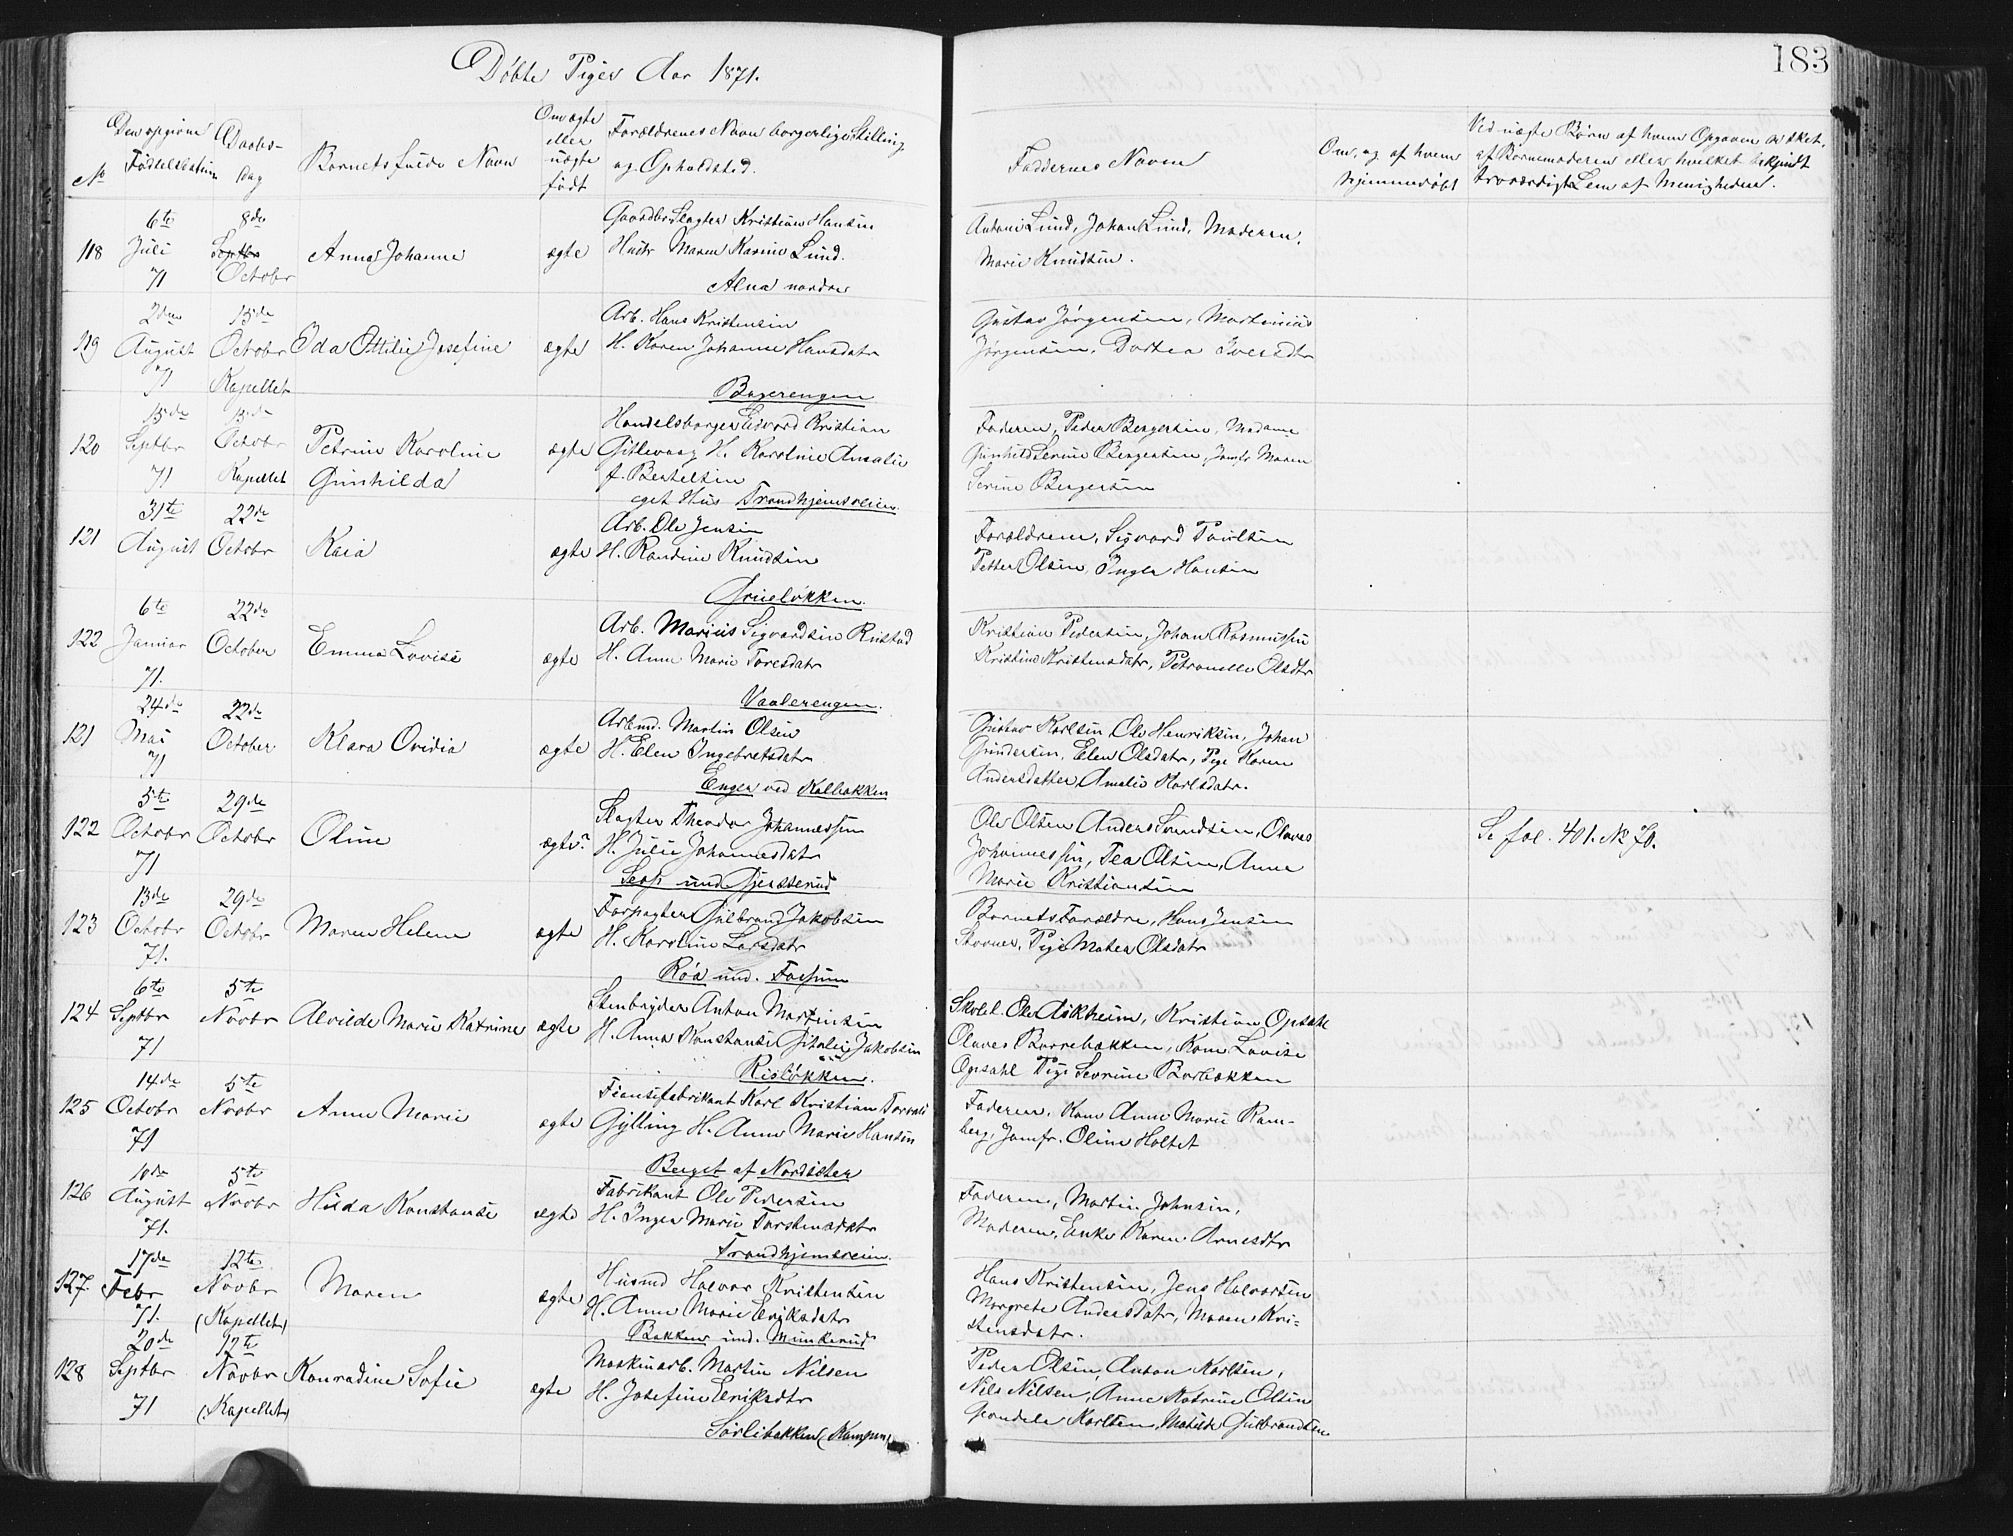 Døbte Piger Aar 1871.
183
No
Den opgivne Fødselsdatum
Daabs-Dag
Barnets fulde Navn
Om ægte eller uægte født
Forældrenes Navn borgerlige Stilling og Opholdsted.
Faddernes Navne
Om, og af hvem hjemmedøbt
Ved uægte Børn af hvem Opgaven er sket, af Barnemoderen eller hvilket bekjendt troværdigt Lem af Menigheden.
118
6te Juli 71
8de Septbr October
Anna Johanne
ægte
Gaardbr Slagter Kristian Hansen
Hustr Maren Karine Lund.
Alna nordre
Antoni Lund, Johan Lund, Moderen,
Marie Knudsen.
119
2den August 71
15de October Kapellet
Ida Ottilie Josefine
ægte
Arb. Hans Kristensen
H. Karen Johanne Hansdatr
Bagerengen
Gustav Jørgensen, Martinius
Jørgensen, Dortea Iversdtr
120
15de Septbr 71
15de Octobr Kapellet
Petrine Karoline
Gunhilda
ægte
Handelsborger Edvard Kristian
Gitlevaag H. Karoline Amalie
f. Bertelsen
eget Hus Trondhjemsveien
Faderen, Peder Bergersen, Madame
Gunhild Serine Bergersen, Jomfr Maren
Serine Bergersen
121
31te August
22de Octobr
Kaia
ægte
Arb. Ole Jensen
H. Randine Knudsen
Grueløkken.
Forældrene, Sigvard Paulsen
Petter Olsen, Inger Hansen
122
6te Januar 71.
22de October
Emma Lovise
ægte
Arb. Marius Sigvardsen Rustad
H. Anne Marie Toresdatr
Vaalerengen.
Kristian Pedersen, Johan Rasmussen
Kristine Kristensdatr, Petronelle Olsdtr
121
24de Mai 71
22de October
Klara Ovidia
ægte
Arbmd. Martin Olsen
H. Elen Ingebretsdatr
Enger ved Kalbakken
Gustav Karlsen, Ole Henriksen, Johan
Gundersen, Elen Olsdatr, Pige Karen
Andersdatter, Amalie Karlsdatr.
122
5te Octobr 71
29de Octobr
Oline
ægte?
Slagter Theodor Johannessen
H. Julie Johannesdatr
Seas und Gjersserud
Ole Olsen Anders Svendsen, Olaves
Johannessen, Tea Olsen, Anne
Marie Kristiansen
Se fol. 401. No 70.
123
13de Octobr 71.
29de Octobr
Maren Helene
ægte
Forpagter Gulbrand Jakobsen
H. Karoline Larsdatr
Røa und. Fossum
Barnets Forældre, Hans Jensen
Stovner, Pige Matea Olsdatr
124
6te Septbr 71
5te Novbr
Alvilde Marie Katrine
ægte
Stenbryder Anton Martinsen
H. Anna Konstanse Gitalie Jakobsen
Risløkken.
Skolel. Ole Askheim, Kristian Opsahl
Olaves Borrebækken, Kone Lovise
Opsahl Pige Severine Borbækken
125
14de Octobr 71
5te Novbr
Anne Marie
ægte
Fiansefabrikant Karl Kristian Torvald
Gylling H. Anne Marie Hansen
Berget af Nordseter
Faderen, Kone Anne Marie Ram-
berg, Jomfr. Oline Holtet
126
10de August 71.
5te Novbr
Hilda Konstanse
ægte
Fabrikant Ole Pedersen
H. Inger Marie Torstensdatr
Trondhjemsveien.
Faderen, Martin Johnsen,
Moderen, Enke Karen Arnesdtr
127.
17de Febr 71.
12te Novbr (Kapellet)
Maren
ægte
Husmd Halvor Kristensen
H. Anne Marie Eriksdatr
Bakken und. Munkerud
Hans Kristensen, Jens Halvorsen
Margrete Andersdatr, Maren Kri-
stensdatr.
128
20de Septbr 71
12te Novbr (Kapellet)
Konradine Sofie
ægte
Maskinarb. Martin Nilsen
H. Josefine Eriksdtr
Sørlibakken (Kampen)
Peder Olsen, Anton Karlsen,
Nils Nilsen, Anne Katrine Olsen
Gundele Karlsen, Matilde Gulbrandsen